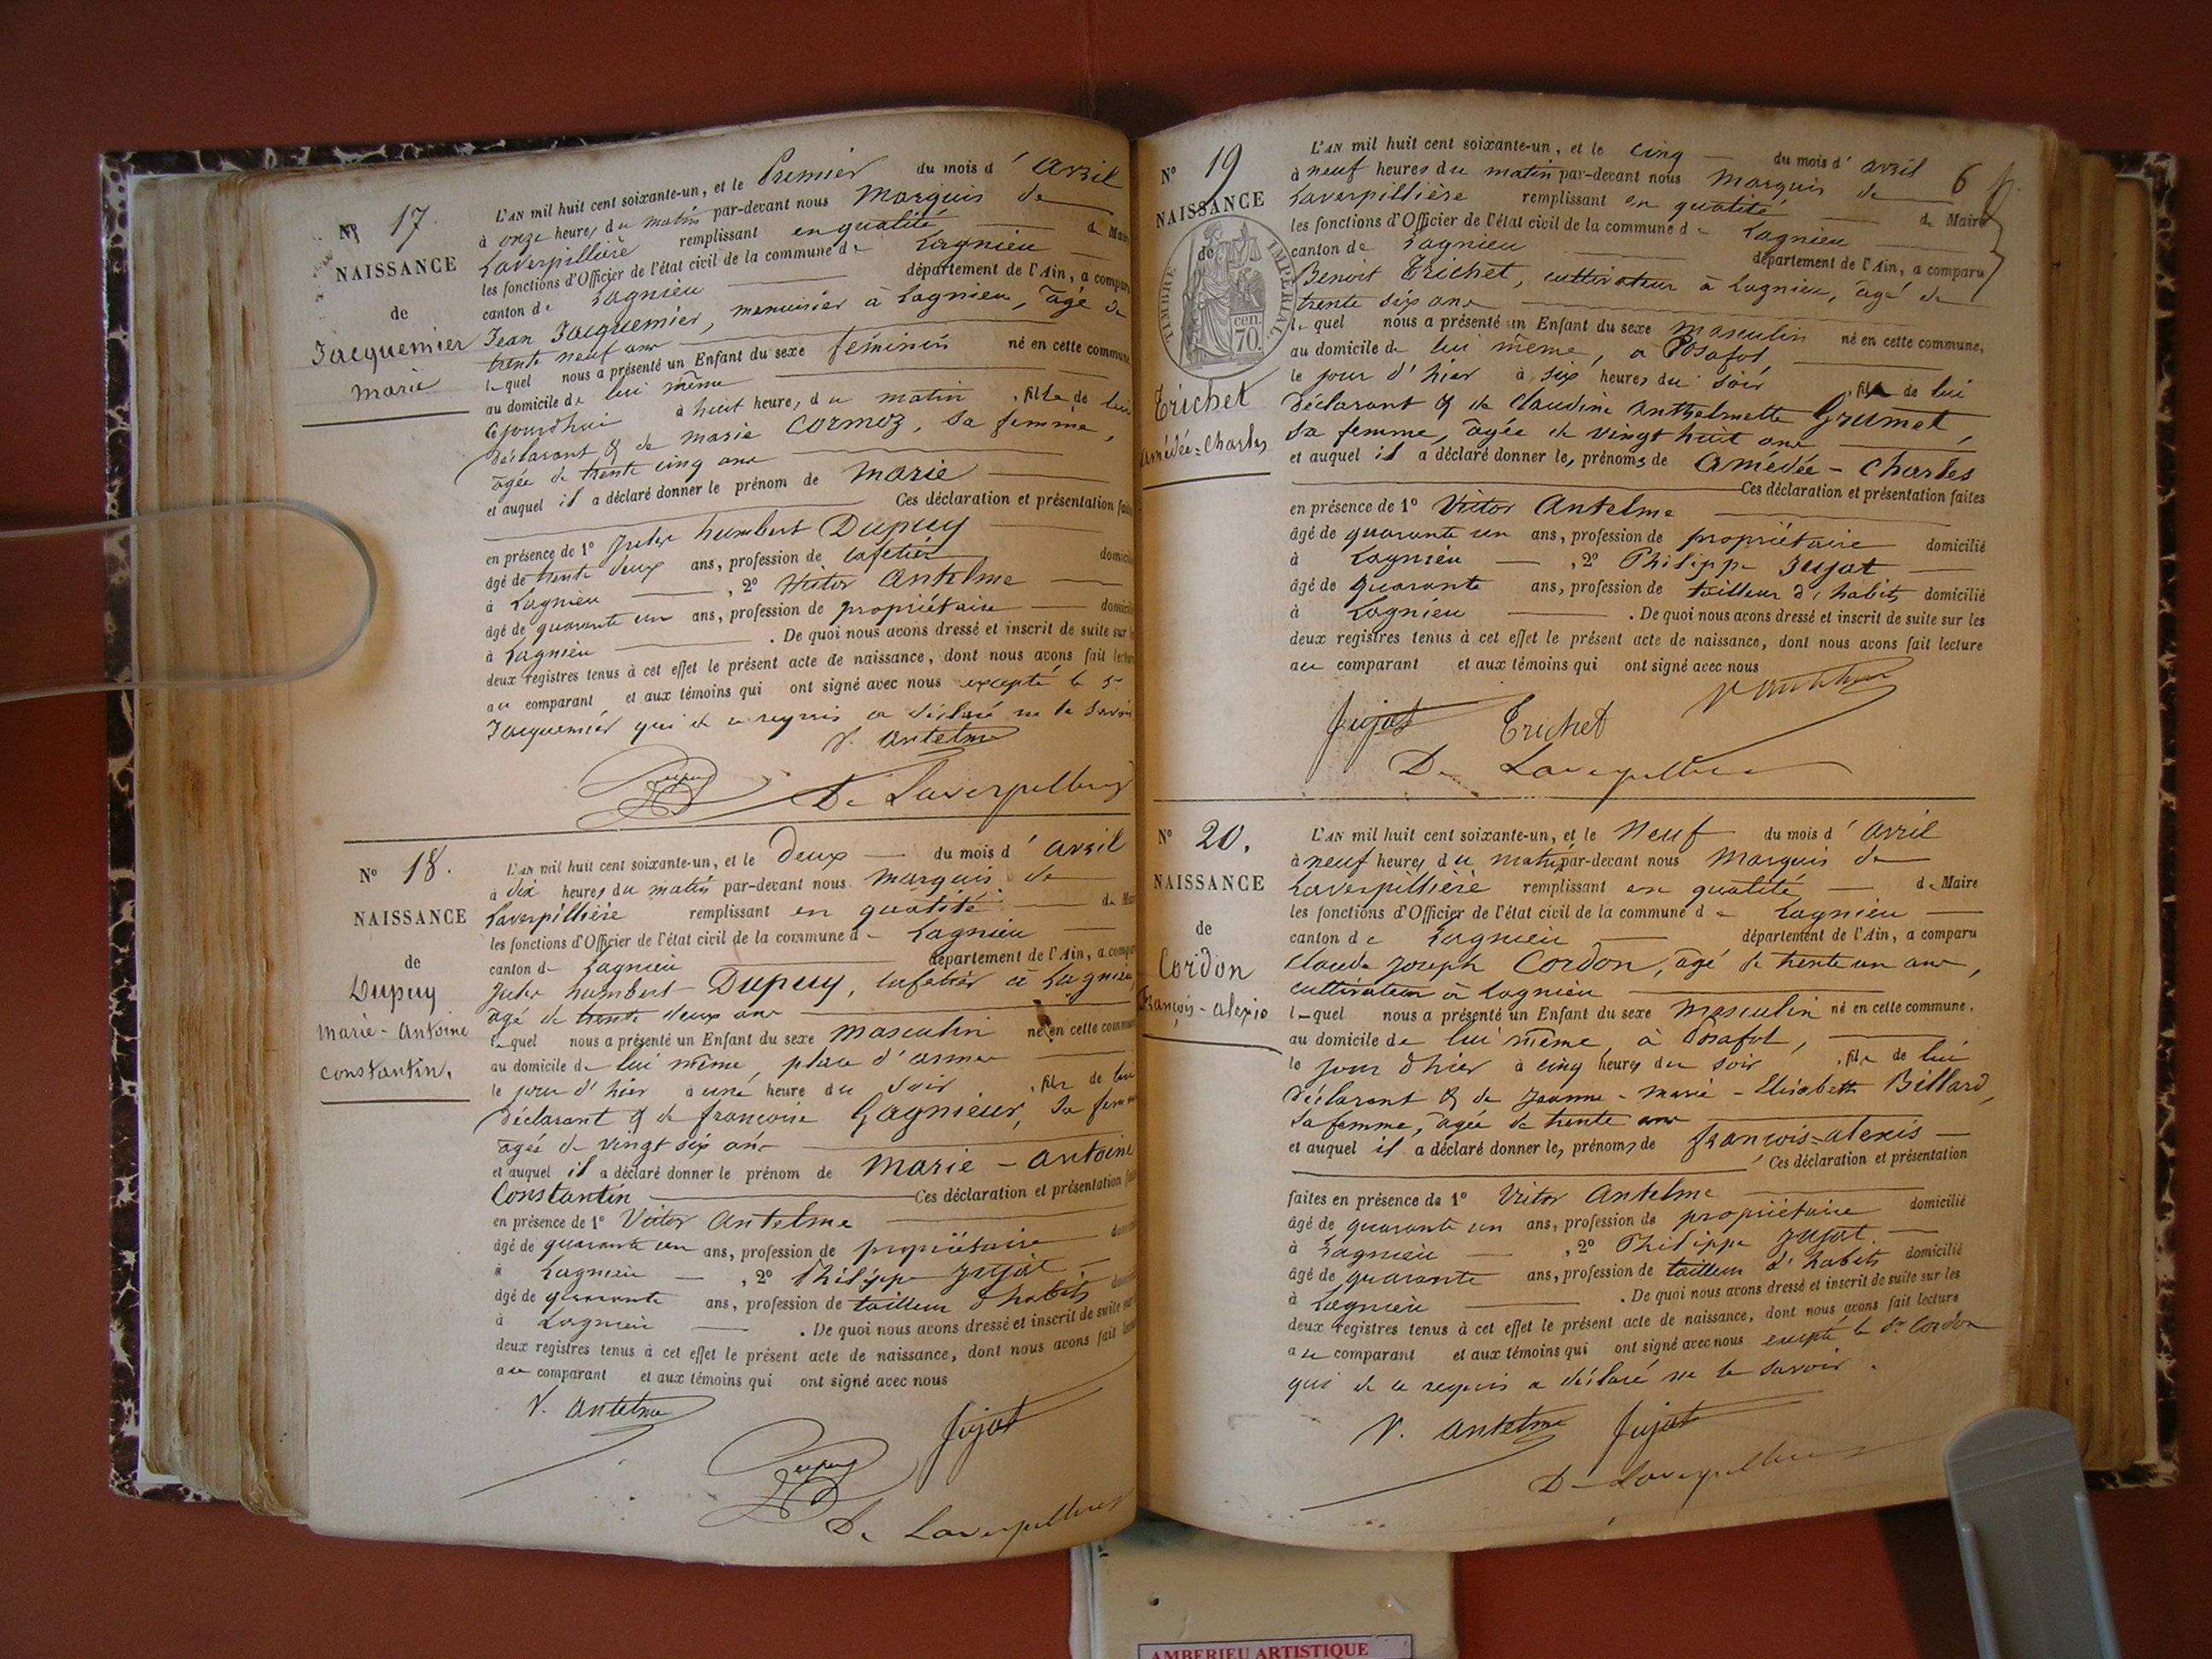 N° 17.
NAISSANCE
de
Jacquemier
Marie
L'AN mil huit cent soixante-un, et le Premier du mois d'avril
à onze heures du matin par-devant nous Marquis de
Laverpillière remplissant en qualité de Mair
les fonctions d'Officier de l'état civil de la commune de Lagnieu
canton de Lagnieu département de l'Ain, a compar
Jean Jacquemier, menuisier à Lagnieu, âgé de
trente neuf ans
lequel nous a présenté un Enfant du sexe féminin né en cette commune
au domicile de lui même
cejourd'hui à huit heures du matin, fille de lui
déclarant & de Marie Cormoz, sa femme,
âgée de trente cinq ans
et auquel il a déclaré donner le prénom de Marie
Ces déclaration et présentation fai
en présence de 1° Jules humbert Dupuy
âgé de trente deux ans, profession de cafetier domici
à Lagnieu, 2° Victor Antelme
âgé de quarante un ans, profession de propriétaire domici
à Lagnieu. De quoi nous avons dressé et inscrit de suite sur l
deux registres tenus à cet effet le présent acte de naissance, dont nous avons fait lectur
au comparant et aux témoins qui ont signé avec nous excepté le Sr
Jacquemier qui de ce requis a déclaré ne le savoir
V. Antelme
Dupuy De Laverpillière
N° 18.
NAISSANCE
de
Dupuy
Marie-Antoine
Constantin.
L'AN mil huit cent soixante-un, et le deux du mois d'avril
à dix heures du matin par-devant nous Marquis de
Laverpillière remplissant en qualité de Mai
les fonctions d'Officier de l'état civil de la commune de Lagnieu
canton de Lagnieu département de l'Ain, a compa
Jules humbert Dupuy, cafetier à Lagnieu
âgé de trente deux ans
lequel nous a présenté un Enfant du sexe masculin né en cette commun
au domicile de lui même, place d'armes
le jour d'hier à une heure du soir, fils de lui
déclarant & de françoise Gagnieur, sa femme
âgée de vingt six ans
et auquel il a déclaré donner le prénom de Marie-Antoine
Constantin Ces déclaration et présentation fai
en présence de 1° Victor Antelme
âgé de quarante un ans, profession de propriétaire domi
à Lagnieu, 2° Philippe Jujat
âgé de quarante ans, profession de tailleur d'habits domici
à Lagnieu. De quoi nous avons dressé et inscrit de suite sur
deux registres tenus à cet effet le présent acte de naissance, dont nous avons fait lectu
au comparant et aux témoins qui ont signé avec nous
V. Antelme Jujat
Dupuy
De Laverpillière
6
N° 19
NAISSANCE
de
TIMBRE IMPÉRIAL
70 cen.
Trichet
amédée-Charles
L'AN mil huit cent soixante-un, et le cinq du mois d'avril
à neuf heures du matin par-devant nous Marquis de
Laverpillière remplissant en qualité de Maire
les fonctions d'Officier de l'état civil de la commune de Lagnieu
canton de Lagnieu département de l'Ain, a comparu
Benoit Trichet, cultivateur à Lagnieu, âgé de
trente six ans
lequel nous a présenté un Enfant du sexe masculin né en cette commune,
au domicile de lui même, à Posafol
le jour d'hier à six heures du soir, fils de lui
déclarant & de Claudine Anthelmette Grumet,
sa femme, âgée de vingt huit ans
et auquel il a déclaré donner les prénoms de Amédée-Charles
Ces déclaration et présentation faites
en présence de 1° Victor Antelme
âgé de quarante un ans, profession de propriétaire domicilié
à Lagnieu, 2° Philippe Jujat
âgé de quarante ans, profession de tailleur d'habits domicilié
à Lagnieu. De quoi nous avons dressé et inscrit de suite sur les
deux registres tenus à cet effet le présent acte de naissance, dont nous avons fait lecture
au comparant et aux témoins qui ont signé avec nous
V. Antelme
Jujat Trichet
De Laverpillière
N° 20.
NAISSANCE
de
Cordon
François-alexis
L'AN mil huit cent soixante-un, et le Neuf du mois d'avril
à neuf heures du matin par-devant nous Marquis de
Laverpillière remplissant en qualité de Maire
les fonctions d'Officier de l'état civil de la commune de Lagnieu
canton de Lagnieu département de l'Ain, a comparu
Claude Joseph Cordon, âgé de trente un ans,
cultivateur à Lagnieu
lequel nous a présenté un Enfant du sexe masculin né en cette commune,
au domicile de lui même, à Posafol,
le jour d'hier à cinq heures du soir, fils de lui
déclarant & de Jeanne-Marie-Elisabeth Billard,
sa femme, âgée de trente ans
et auquel il a déclaré donner les prénoms de françois-alexis
Ces déclaration et présentation
faites en présence de 1° Victor Antelme
âgé de quarante un ans, profession de propriétaire domicilié
à Lagnieu, 2° Philippe Jujat
âgé de quarante ans, profession de tailleur d'habits domicilié
à Lagnieu. De quoi nous avons dressé et inscrit de suite sur les
deux registres tenus à cet effet le présent acte de naissance, dont nous avons fait lecture
au comparant et aux témoins qui ont signé avec nous excepté le Sr Cordon
qui de ce requis a déclaré ne le savoir.
V. Antelme Jujat
De Laverpillière
AMBERIEU ARTISTIQUE